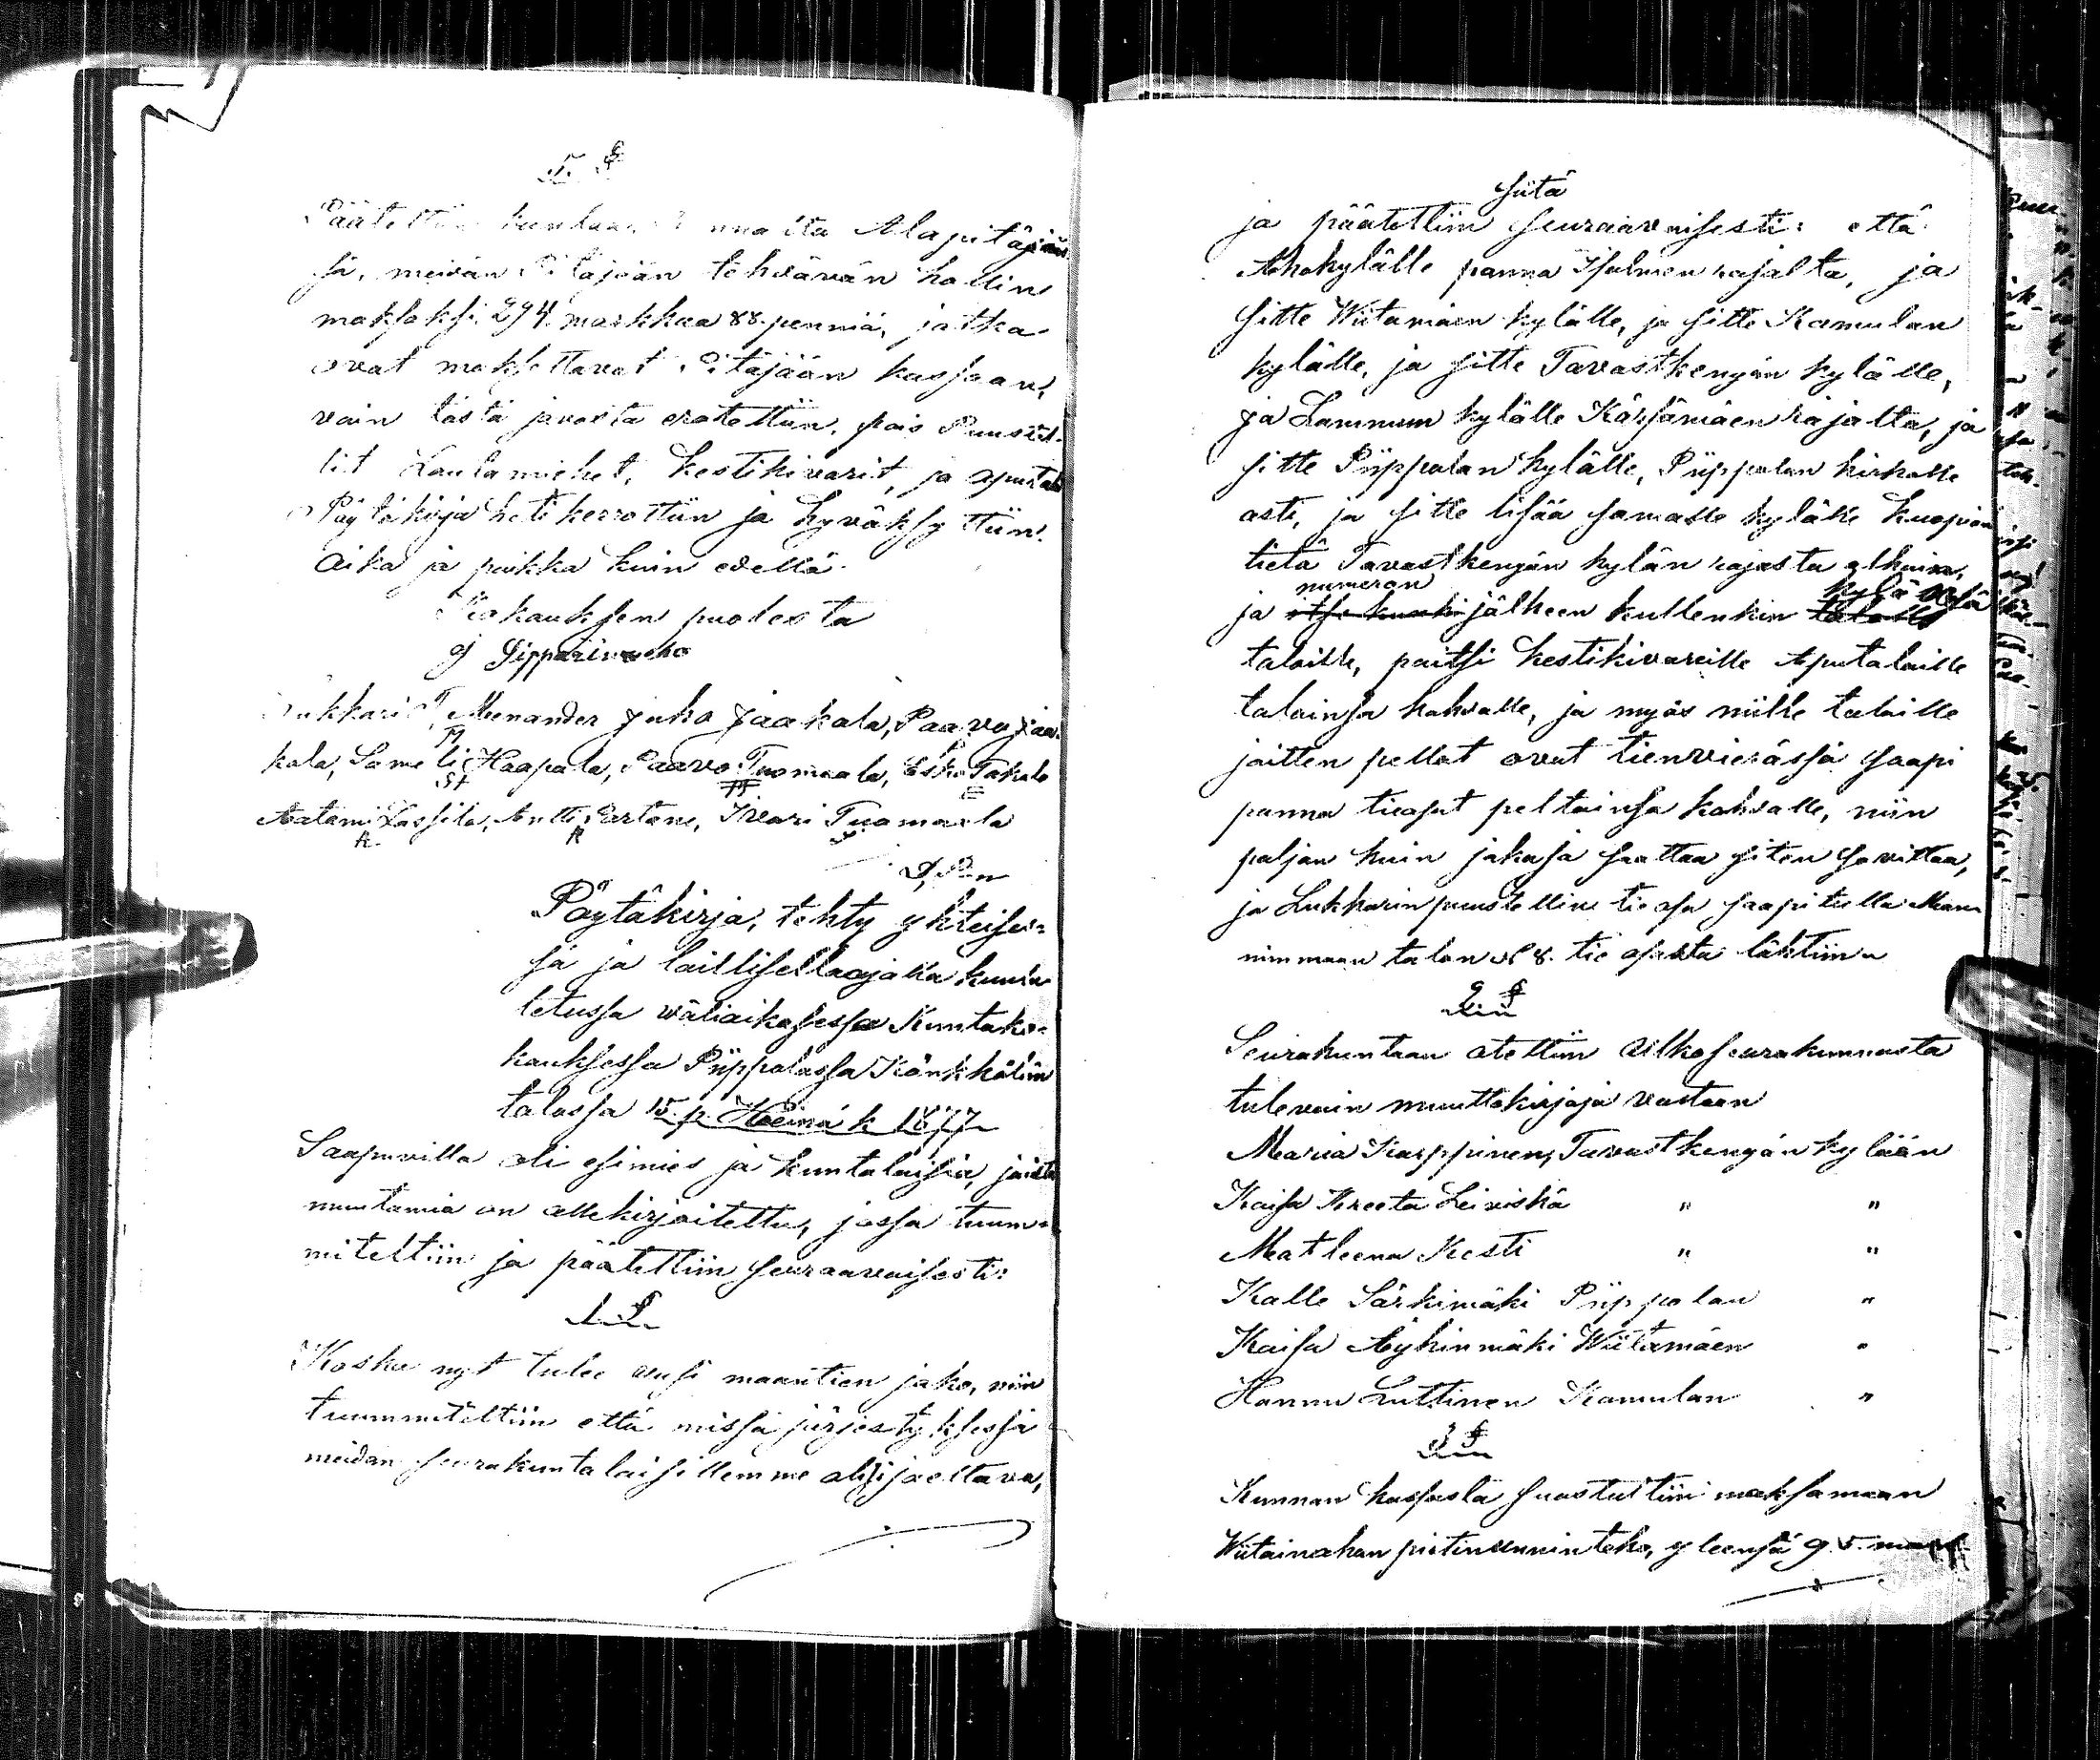 5 §
Päätettiin kunkun maita Alapitäjäs
sä, meidän Pitäjään tehdävän hallin
maksaksi 294 markkaa 88 penniä, jotka
ovat maksettavat Pitäjään kassaan,
vain tästä jaosta erotettiin, pois Puustel-
lit Laulamiehet, Kestikivarit, ja aputalot
Pöytäkirja heti kerrottiin ja hyväksyttiin.
Aika ja paikka kuin edellä.
Kokouksen puolesta
J Sipparinaho
Lukkari T. Menander Juho Jaakola, Paavo Jaa-
kola, Sameli Haapala, Paavo Tuomaala, Esko Takalo
Aatami Lassila, Antti Partane, Iivari Tuomaala
Pöytäkirja, tehty yhteises-
sä ja laillisella ajalla kuulu-
tetussa väliaikasessa Kuntako-
kouksessa Piippolassa Känkkälän
talossa 15 p. Heinä k 1877
Saapuvilla oli esimies ja kuntalaisia, joista
muutamia on allekirjoitettu, jossa tuum-
miteltiin ja päätettiin seuraavaisesti:
1 §
Koska nyt tulee uusi maantien jako, niin
tuummiteltiin että missä järjestyksessä
meidän seurakuntalaisillemme olisi jaettava,
siitä
ja päätettiin seuraavaisesti: että
Ahokylälle panna Isalmen rajalta, ja
sitte Wiitamäen kylälle, ja sitte Kamulan
kylälle, ja sitte Tavastkengän kylälle,
ja Lamunm kylälle Kärsämäen rajalta, ja
sitte Piippolan kylälle, Piippolan kirkolle
asti, ja sitte lisää samalle kylälle Kuopion
tietä Tavastkengän kylän rajasta alkain,
numeron kylä össä
ja itse kunki jälkeen kullenkin talolle
taloille, paitsi kestikivareille Aputaloille
talainsa kohdalle, ja myös niille taloille
joitten pellot ovat tienvieressä saapi
panna tieosat peltoinsa kohdalle, niin
paljon kuin jakaja saattaa siten sovittaa,
ja Lukkarin puustellin tie osa saapi tulla Man-
nimmaan talon N 8. tie osasta läktiin
2 §
Seurakuntaan otettiin ulkoseurakunnasta
tulevain muuttokirjoja vastaan
Maria Karppinen, Tavastkengän kylään
Kaisa Kreeta Leiviskä " "
Matleena Kesti " "
Kalle Särkimäki Piippolan "
Kaisa Äyhinmäki Wiitamäen "
Hannu Luttinen Kamulan "
3 §
Kunnan kassasta suostuttiin maksamaan
Wiitainahan pirtin uunin teko, yleensä 95